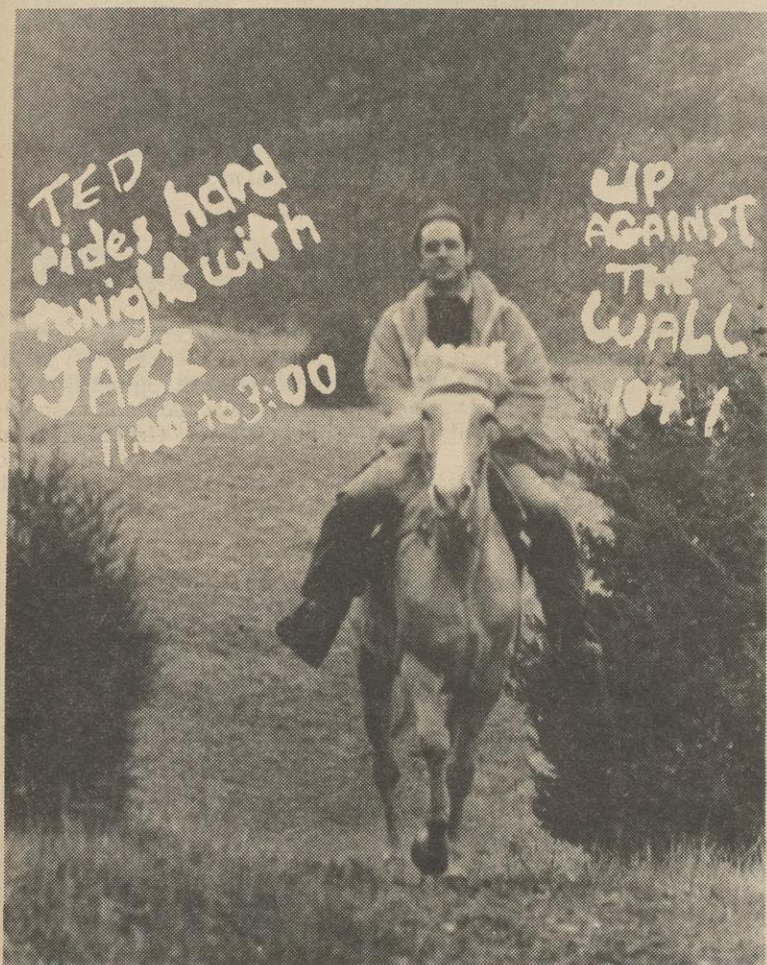 TED
rides hard
tonight with
JAZZ
11:00 to 3:00
UP
AGAINST
THE
WALL
104.1